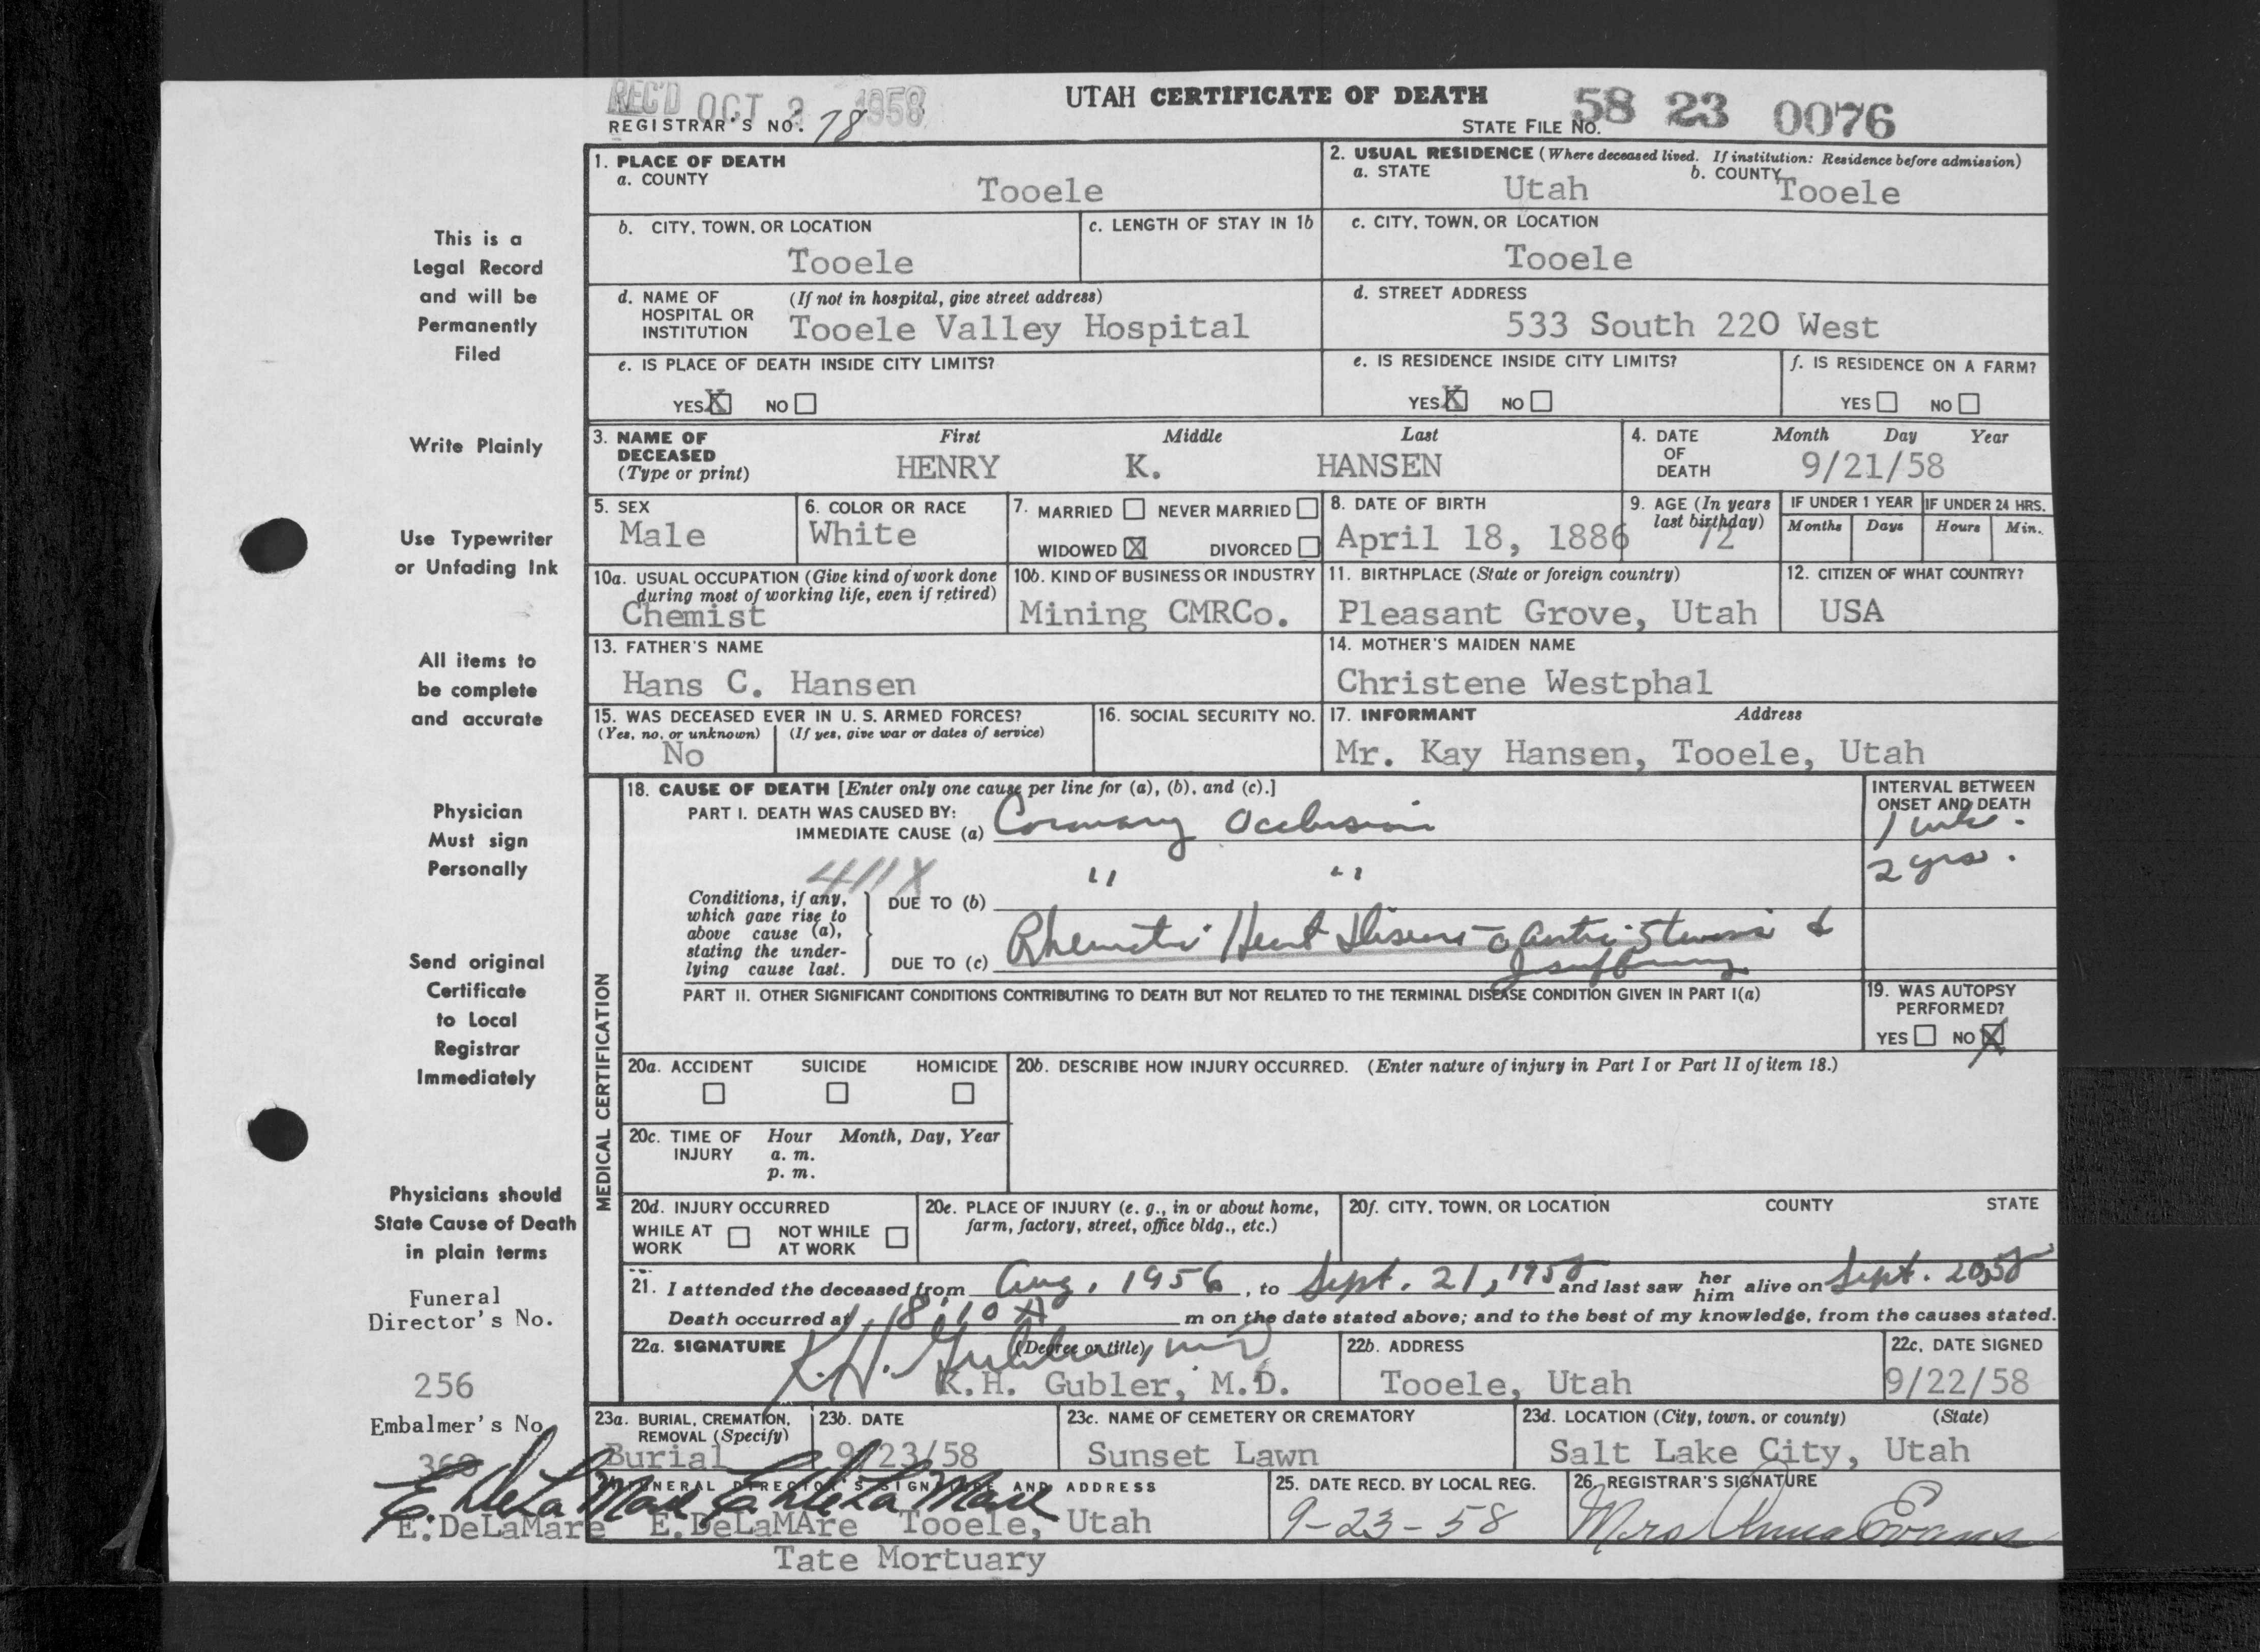 REC'D OCT 3 1958
UTAH CERTIFICATE OF DEATH
REGISTRAR'S NO. 78
STATE FILE NO. 58 23 0076
This is a
Legal Record
and will be
Permanently
Filed
Write Plainly
Use Typewriter
or Unfading Ink
All items to
be complete
and accurate
Physician
Must sign
Personally
Send original
Certificate
to Local
Registrar
Immediately
Physicians should
State Cause of Death
in plain terms
Funeral
Director's No.
256
Embalmer's No.
360
E. DeLaMare
E. DeLaMare
1. PLACE OF DEATH
a. COUNTY
Tooele
2. USUAL RESIDENCE (Where deceased lived. If institution: Residence before admission)
a. STATE Utah b. COUNTY Tooele
b. CITY, TOWN, OR LOCATION
Tooele
c. LENGTH OF STAY IN 1b
c. CITY, TOWN, OR LOCATION
Tooele
d. NAME OF HOSPITAL OR INSTITUTION (If not in hospital, give street address)
Tooele Valley Hospital
d. STREET ADDRESS
533 South 220 West
e. IS PLACE OF DEATH INSIDE CITY LIMITS?
YES X NO
e. IS RESIDENCE INSIDE CITY LIMITS?
YES X NO
f. IS RESIDENCE ON A FARM?
YES NO
3. NAME OF DECEASED (Type or print)
First Middle Last
HENRY K. HANSEN
4. DATE OF DEATH Month Day Year
9/21/58
5. SEX
Male
6. COLOR OR RACE
White
7. MARRIED NEVER MARRIED
WIDOWED X DIVORCED
8. DATE OF BIRTH
April 18, 1886
9. AGE (In years last birthday)
72
IF UNDER 1 YEAR IF UNDER 24 HRS.
Months Days Hours Min.
10a. USUAL OCCUPATION (Give kind of work done
during most of working life, even if retired)
Chemist
10b. KIND OF BUSINESS OR INDUSTRY
Mining CMRCo.
11. BIRTHPLACE (State or foreign country)
Pleasant Grove, Utah
12. CITIZEN OF WHAT COUNTRY?
USA
13. FATHER'S NAME
Hans C. Hansen
14. MOTHER'S MAIDEN NAME
Christene Westphal
15. WAS DECEASED EVER IN U. S. ARMED FORCES?
(Yes, no, or unknown) (If yes, give war or dates of service)
No
16. SOCIAL SECURITY NO.
17. INFORMANT Address
Mr. Kay Hansen, Tooele, Utah
MEDICAL CERTIFICATION
18. CAUSE OF DEATH [Enter only one cause per line for (a), (b), and (c).]
INTERVAL BETWEEN
ONSET AND DEATH
PART I. DEATH WAS CAUSED BY:
IMMEDIATE CAUSE (a) Coronary Occlusion 1 wk.
411X
Conditions, if any,
which gave rise to
above cause (a),
stating the under-
lying cause last.
DUE TO (b) " " 2 yrs.
DUE TO (c) Rheumatic Heart Disease Aortic Stenosis &
Insufficiency
PART II. OTHER SIGNIFICANT CONDITIONS CONTRIBUTING TO DEATH BUT NOT RELATED TO THE TERMINAL DISEASE CONDITION GIVEN IN PART I(a)
19. WAS AUTOPSY
PERFORMED?
YES NO X
20a. ACCIDENT SUICIDE HOMICIDE
20b. DESCRIBE HOW INJURY OCCURRED. (Enter nature of injury in Part I or Part II of item 18.)
20c. TIME OF INJURY Hour Month, Day, Year
a. m.
p. m.
20d. INJURY OCCURRED
WHILE AT WORK NOT WHILE AT WORK
20e. PLACE OF INJURY (e. g., in or about home,
farm, factory, street, office bldg., etc.)
20f. CITY, TOWN, OR LOCATION COUNTY STATE
21. I attended the deceased from Aug, 1956, to Sept. 21, 1958 and last saw her him alive on Sept. 20, 58
Death occurred at 8:10 A m on the date stated above; and to the best of my knowledge, from the causes stated.
22a. SIGNATURE (Degree or title)
K.H. Gubler, MD
K.H. Gubler, M.D.
22b. ADDRESS
Tooele, Utah
22c. DATE SIGNED
9/22/58
23a. BURIAL, CREMATION,
REMOVAL (Specify)
Burial
23b. DATE
9/23/58
23c. NAME OF CEMETERY OR CREMATORY
Sunset Lawn
23d. LOCATION (City, town, or county) (State)
Salt Lake City, Utah
FUNERAL DIRECTOR'S SIGNATURE AND ADDRESS
E. DeLaMare
E.DeLaMAre Tooele, Utah
Tate Mortuary
25. DATE RECD. BY LOCAL REG.
9-23-58
26. REGISTRAR'S SIGNATURE
Mrs Anna Evans